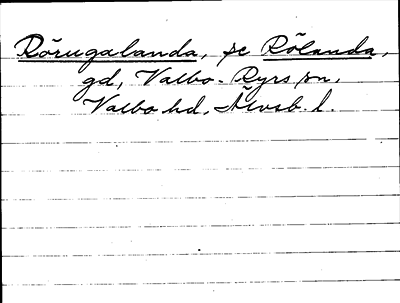 Rörugalanda, se Rölanda,
gd, Valbo-Ryrs sn,
Valbo hd, Älvsb. l.